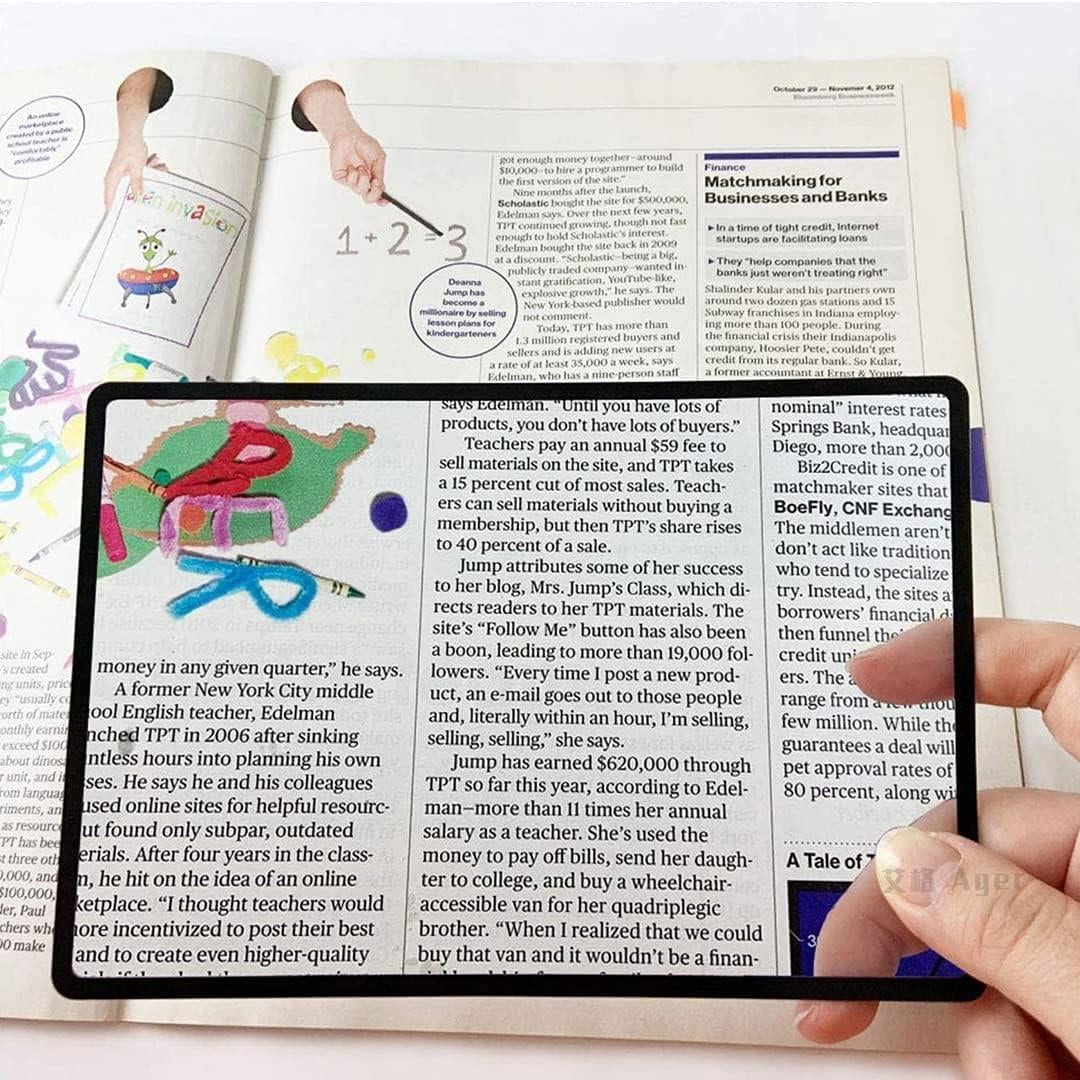 October 29 — Novemer 4, 2012
Bloomberg Businessweek
An online
marketplace
created by a public
school teacher is
"comfortably"
profitable
alien invasion
1+2=3
Deanna
Jump has
become a
millionaire by selling
lesson plans for
kindergarteners
got enough money together—around
$10,000—to hire a programmer to build
the first version of the site."
Nine months after the launch,
Scholastic bought the site for $500,000,
Edelman says. Over the next few years,
TPT continued growing, though not fast
enough to hold Scholastic's interest.
Edelman bought the site back in 2009
at a discount. "Scholastic—being a big,
publicly traded company—wanted in-
stant gratification, YouTube-like,
explosive growth," he says. The
New York-based publisher would
not comment.
Today, TPT has more than
1.3 million registered buyers and
sellers and is adding new users at
a rate of at least 35,000 a week, says
Edelman, who has a nine-person staff
Finance
Matchmaking for
Businesses and Banks
▸ In a time of tight credit, Internet
startups are facilitating loans
▸ They "help companies that the
banks just weren't treating right"
Shalinder Kular and his partners own
around two dozen gas stations and 15
Subway franchises in Indiana employ-
ing more than 100 people. During
the financial crisis their Indianapolis
company, Hoosier Pete, couldn't get
credit from its regular bank. So Kular,
a former accountant at Ernst & Young,
site in Sep-
's created
ing units, price
ey "usually co
orth of mater
onthly earnin
exceed $100
about dinosa
r unit, and i
rom languag
riments, an
as resource
TPT has bee
st three oth
0,000, and
$100,000,
ler, Paul
chers wh
00 make
money in any given quarter," he says.
A former New York City middle
ool English teacher, Edelman
nched TPT in 2006 after sinking
ntless hours into planning his own
ses. He says he and his colleagues
used online sites for helpful resourc-
ut found only subpar, outdated
erials. After four years in the class-
m, he hit on the idea of an online
ketplace. "I thought teachers would
ore incentivized to post their best
and to create even higher-quality
says Edelman. "Until you have lots of
products, you don't have lots of buyers."
Teachers pay an annual $59 fee to
sell materials on the site, and TPT takes
a 15 percent cut of most sales. Teach-
ers can sell materials without buying a
membership, but then TPT's share rises
to 40 percent of a sale.
Jump attributes some of her success
to her blog, Mrs. Jump's Class, which di-
rects readers to her TPT materials. The
site's "Follow Me" button has also been
a boon, leading to more than 19,000 fol-
lowers. "Every time I post a new prod-
uct, an e-mail goes out to those people
and, literally within an hour, I'm selling,
selling, selling," she says.
Jump has earned $620,000 through
TPT so far this year, according to Edel-
man—more than 11 times her annual
salary as a teacher. She's used the
money to pay off bills, send her daugh-
ter to college, and buy a wheelchair-
accessible van for her quadriplegic
brother. "When I realized that we could
buy that van and it wouldn't be a finan-
nominal" interest rates
Springs Bank, headquar
Diego, more than 2,000
Biz2Credit is one of
matchmaker sites that
BoeFly, CNF Exchang
The middlemen aren't
don't act like tradition
who tend to specialize
try. Instead, the sites a
borrowers' financial d
then funnel the
credit uni
ers. The a
range from a few thou
few million. While the
guarantees a deal will
pet approval rates of
80 percent, along wi
A Tale of T
3
艾格 Ager